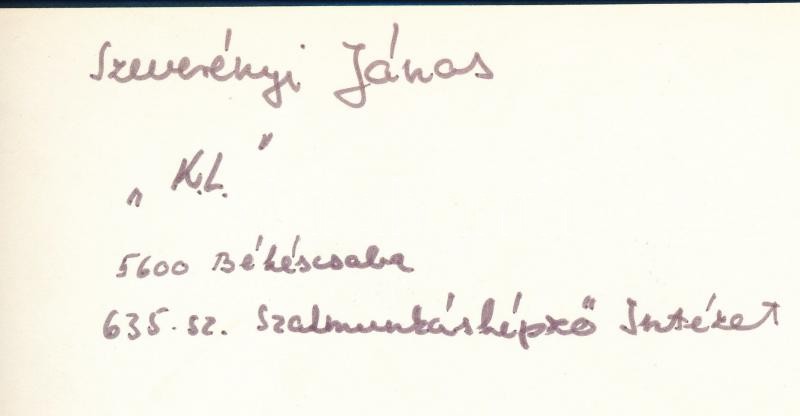 Szeverényi János
„K.L.”
5600 Békéscsaba
635.sz. Szakmunkásképző Intézet